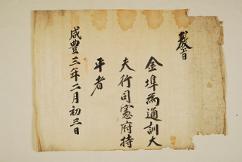 敎旨
金埠為通訓大
夫行司憲府持
平者
咸豐三年二月初三日